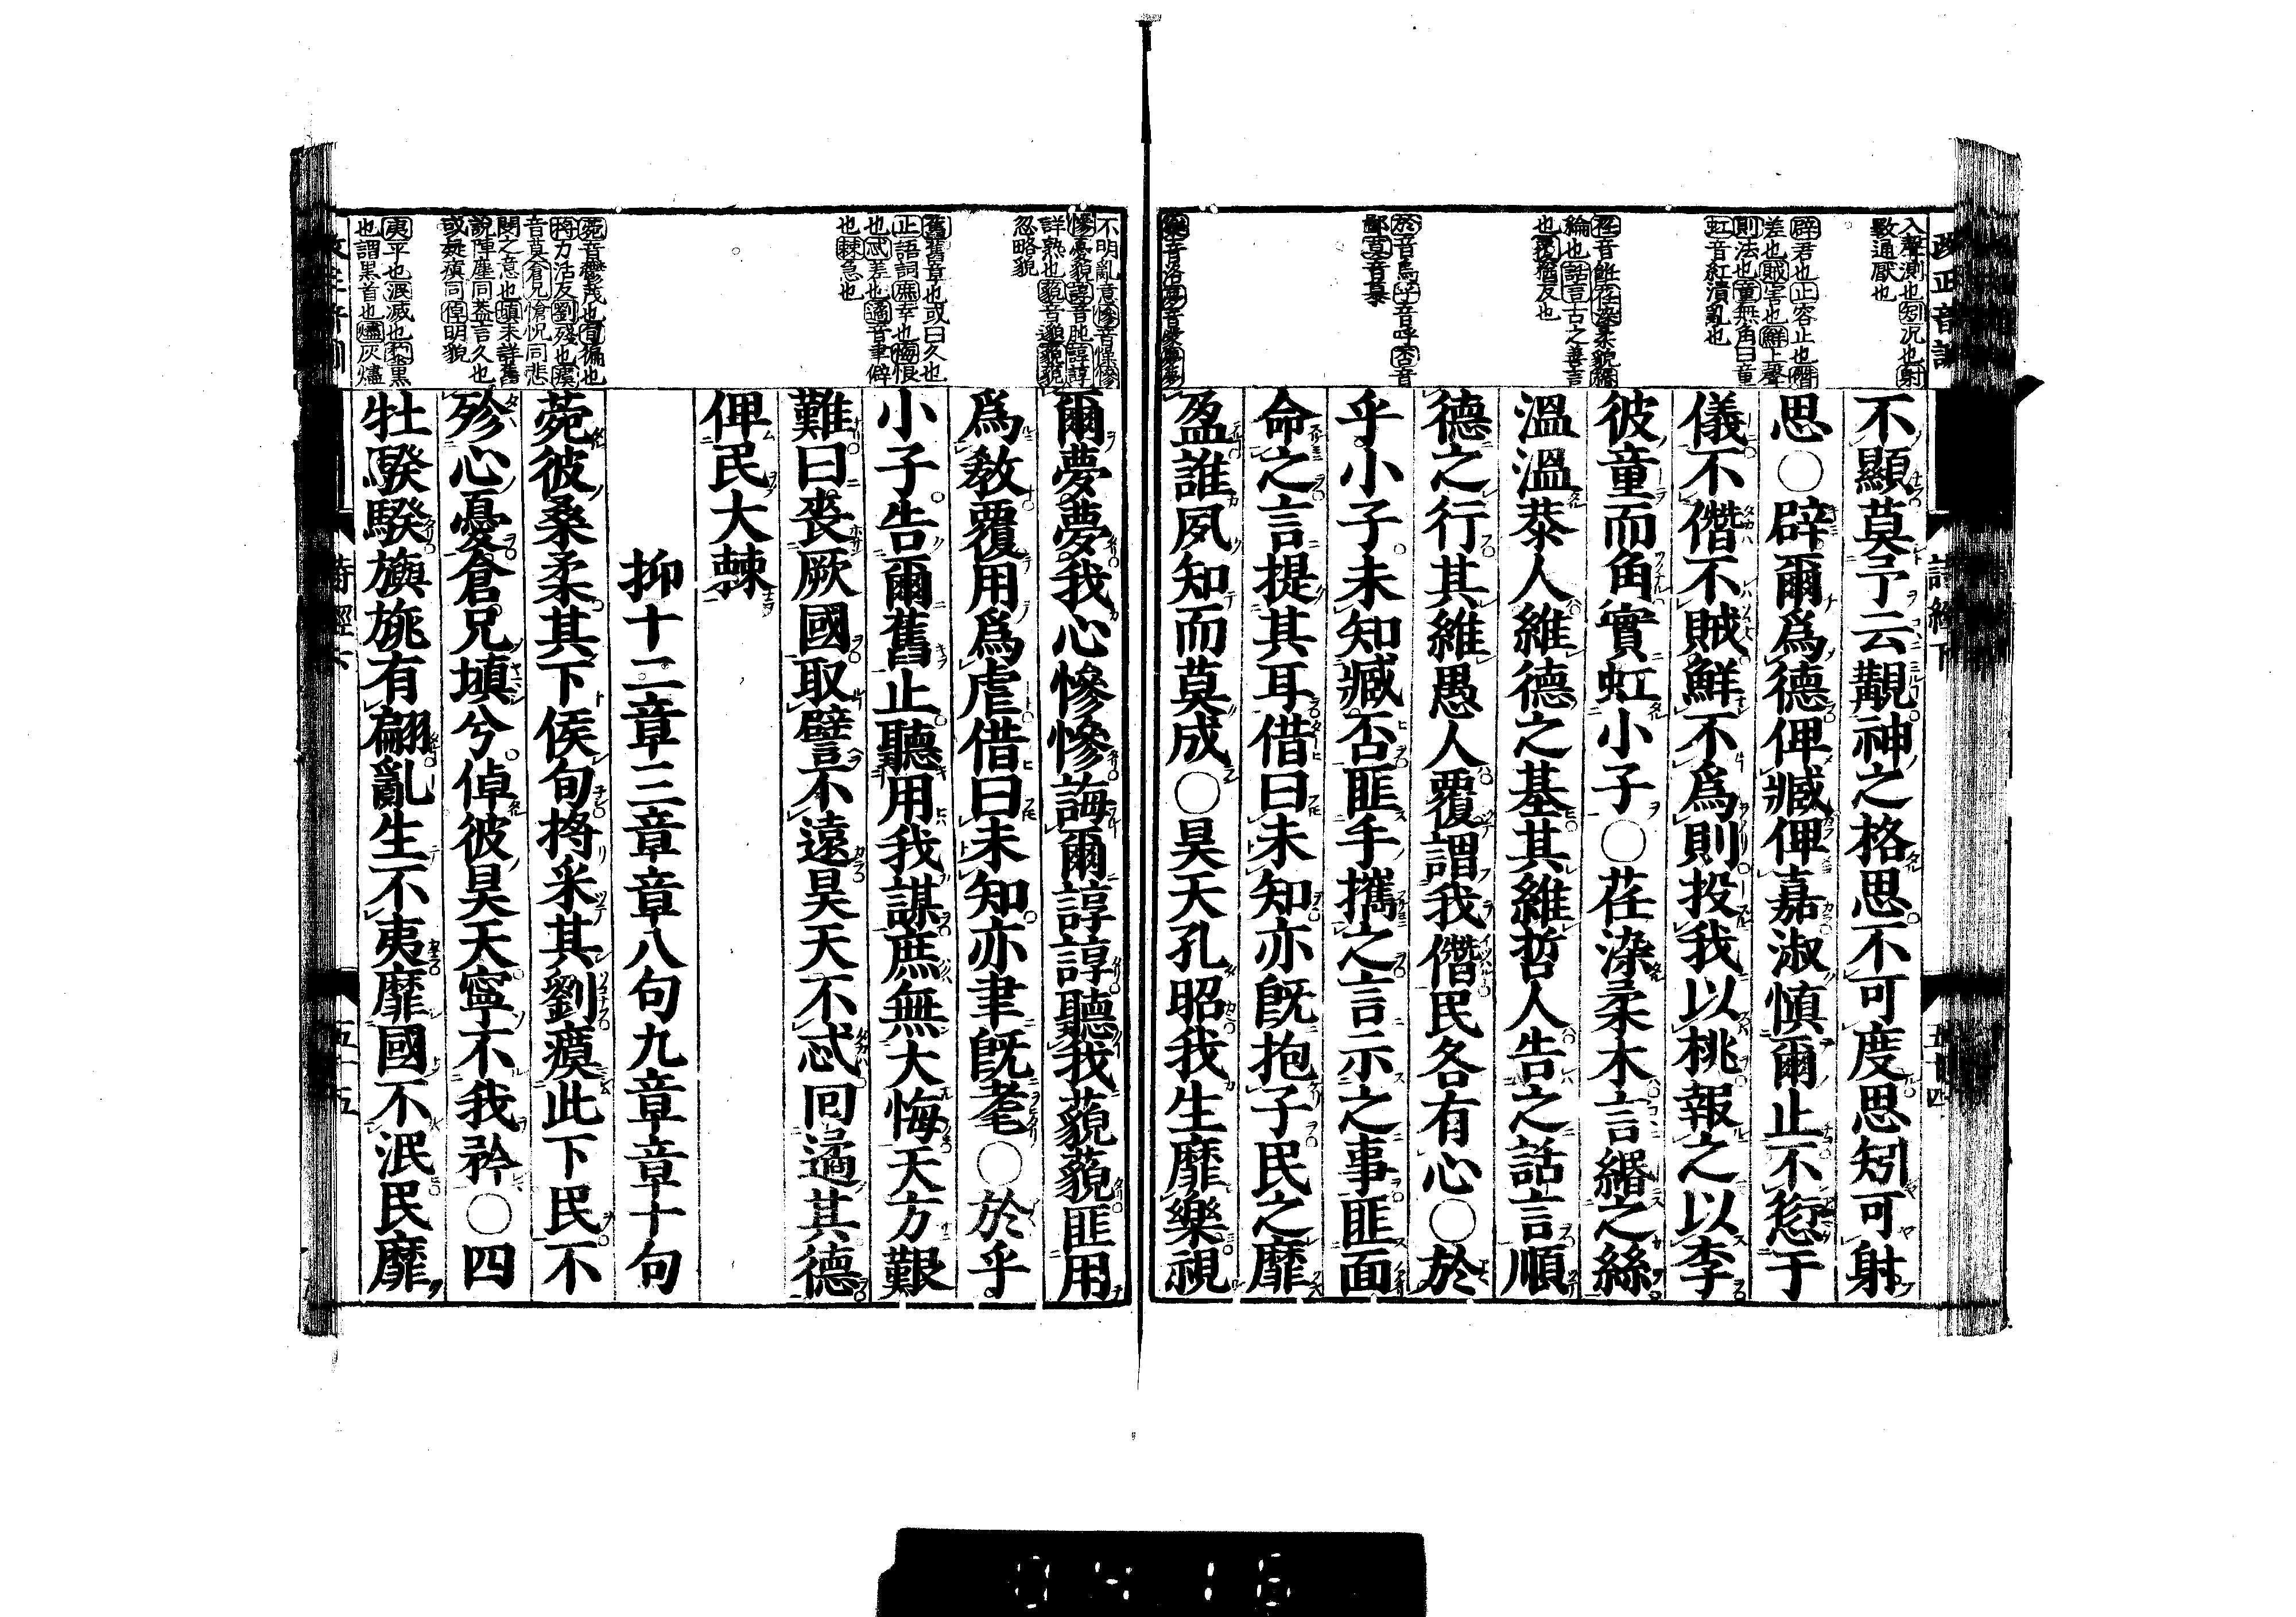 改正音訓
詩經下
五十四
入聲測也矧况也射
斁通厭也
辟君也止容止也僭
差也賊害也鮮上聲
則法也童無角曰童
虹音紅潰亂也
荏音飪荏染柔貌緡
綸也話言古之善言
也覆猶反也
於音烏乎音呼否音
鄙莫音慕
樂音洛夢音蒙夢夢
不顯莫予云覯神之格思不可度思矧可射
思○辟爾爲德俾臧俾嘉淑慎爾止不愆于
儀不僭不賊鮮不爲則投我以桃報之以李
彼童而角實虹小子○荏染柔木言緡之絲
溫溫恭人維德之基其維哲人告之話言順
德之行其維愚人覆謂我僭民各有心○於
乎小子未知臧否匪手攜之言示之事匪面
命之言提其耳借曰未知亦既抱子民之靡
盈誰夙知而莫成○昊天孔昭我生靡樂視
不明亂意慘音懆慘
慘憂貌諄音肫諄諄
詳熟也藐音邈藐藐
忽略貌
舊舊章也或曰久也
止語詞庶幸也悔恨
也忒差也遹音聿僻
也棘急也
菀音鬱茂也旬徧也
捋力活反劉殘也瘼
音莫倉兄愴怳同悲
閔之意也填未詳舊
說陳塵同蓋言久也
或疑瘨同倬明貌
夷平也泯滅也黎黑
也謂黑首也燼灰燼
爾夢夢我心慘慘誨爾諄諄聽我藐藐匪用
爲教覆用爲虐借曰未知亦聿既耄○於乎
小子告爾舊止聽用我謀庶無大悔天方艱
難曰喪厥國取譬不遠昊天不忒回遹其德
俾民大棘
抑十二章三章章八句九章章十句
菀彼桑柔其下侯旬捋采其劉瘼此下民不
殄心憂倉兄填兮倬彼昊天寧不我矜○四
牡騤騤旟旐有翩亂生不夷靡國不泯民靡
詩經下
五十五
0416